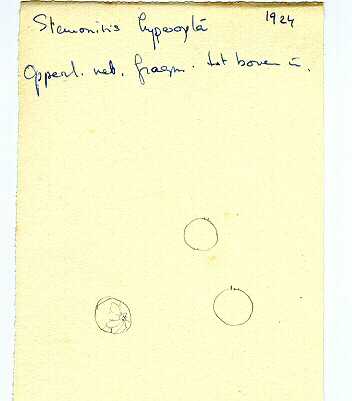 Stemonitis hyperopta 1924
Opperl. net. fragm. tot boven in.